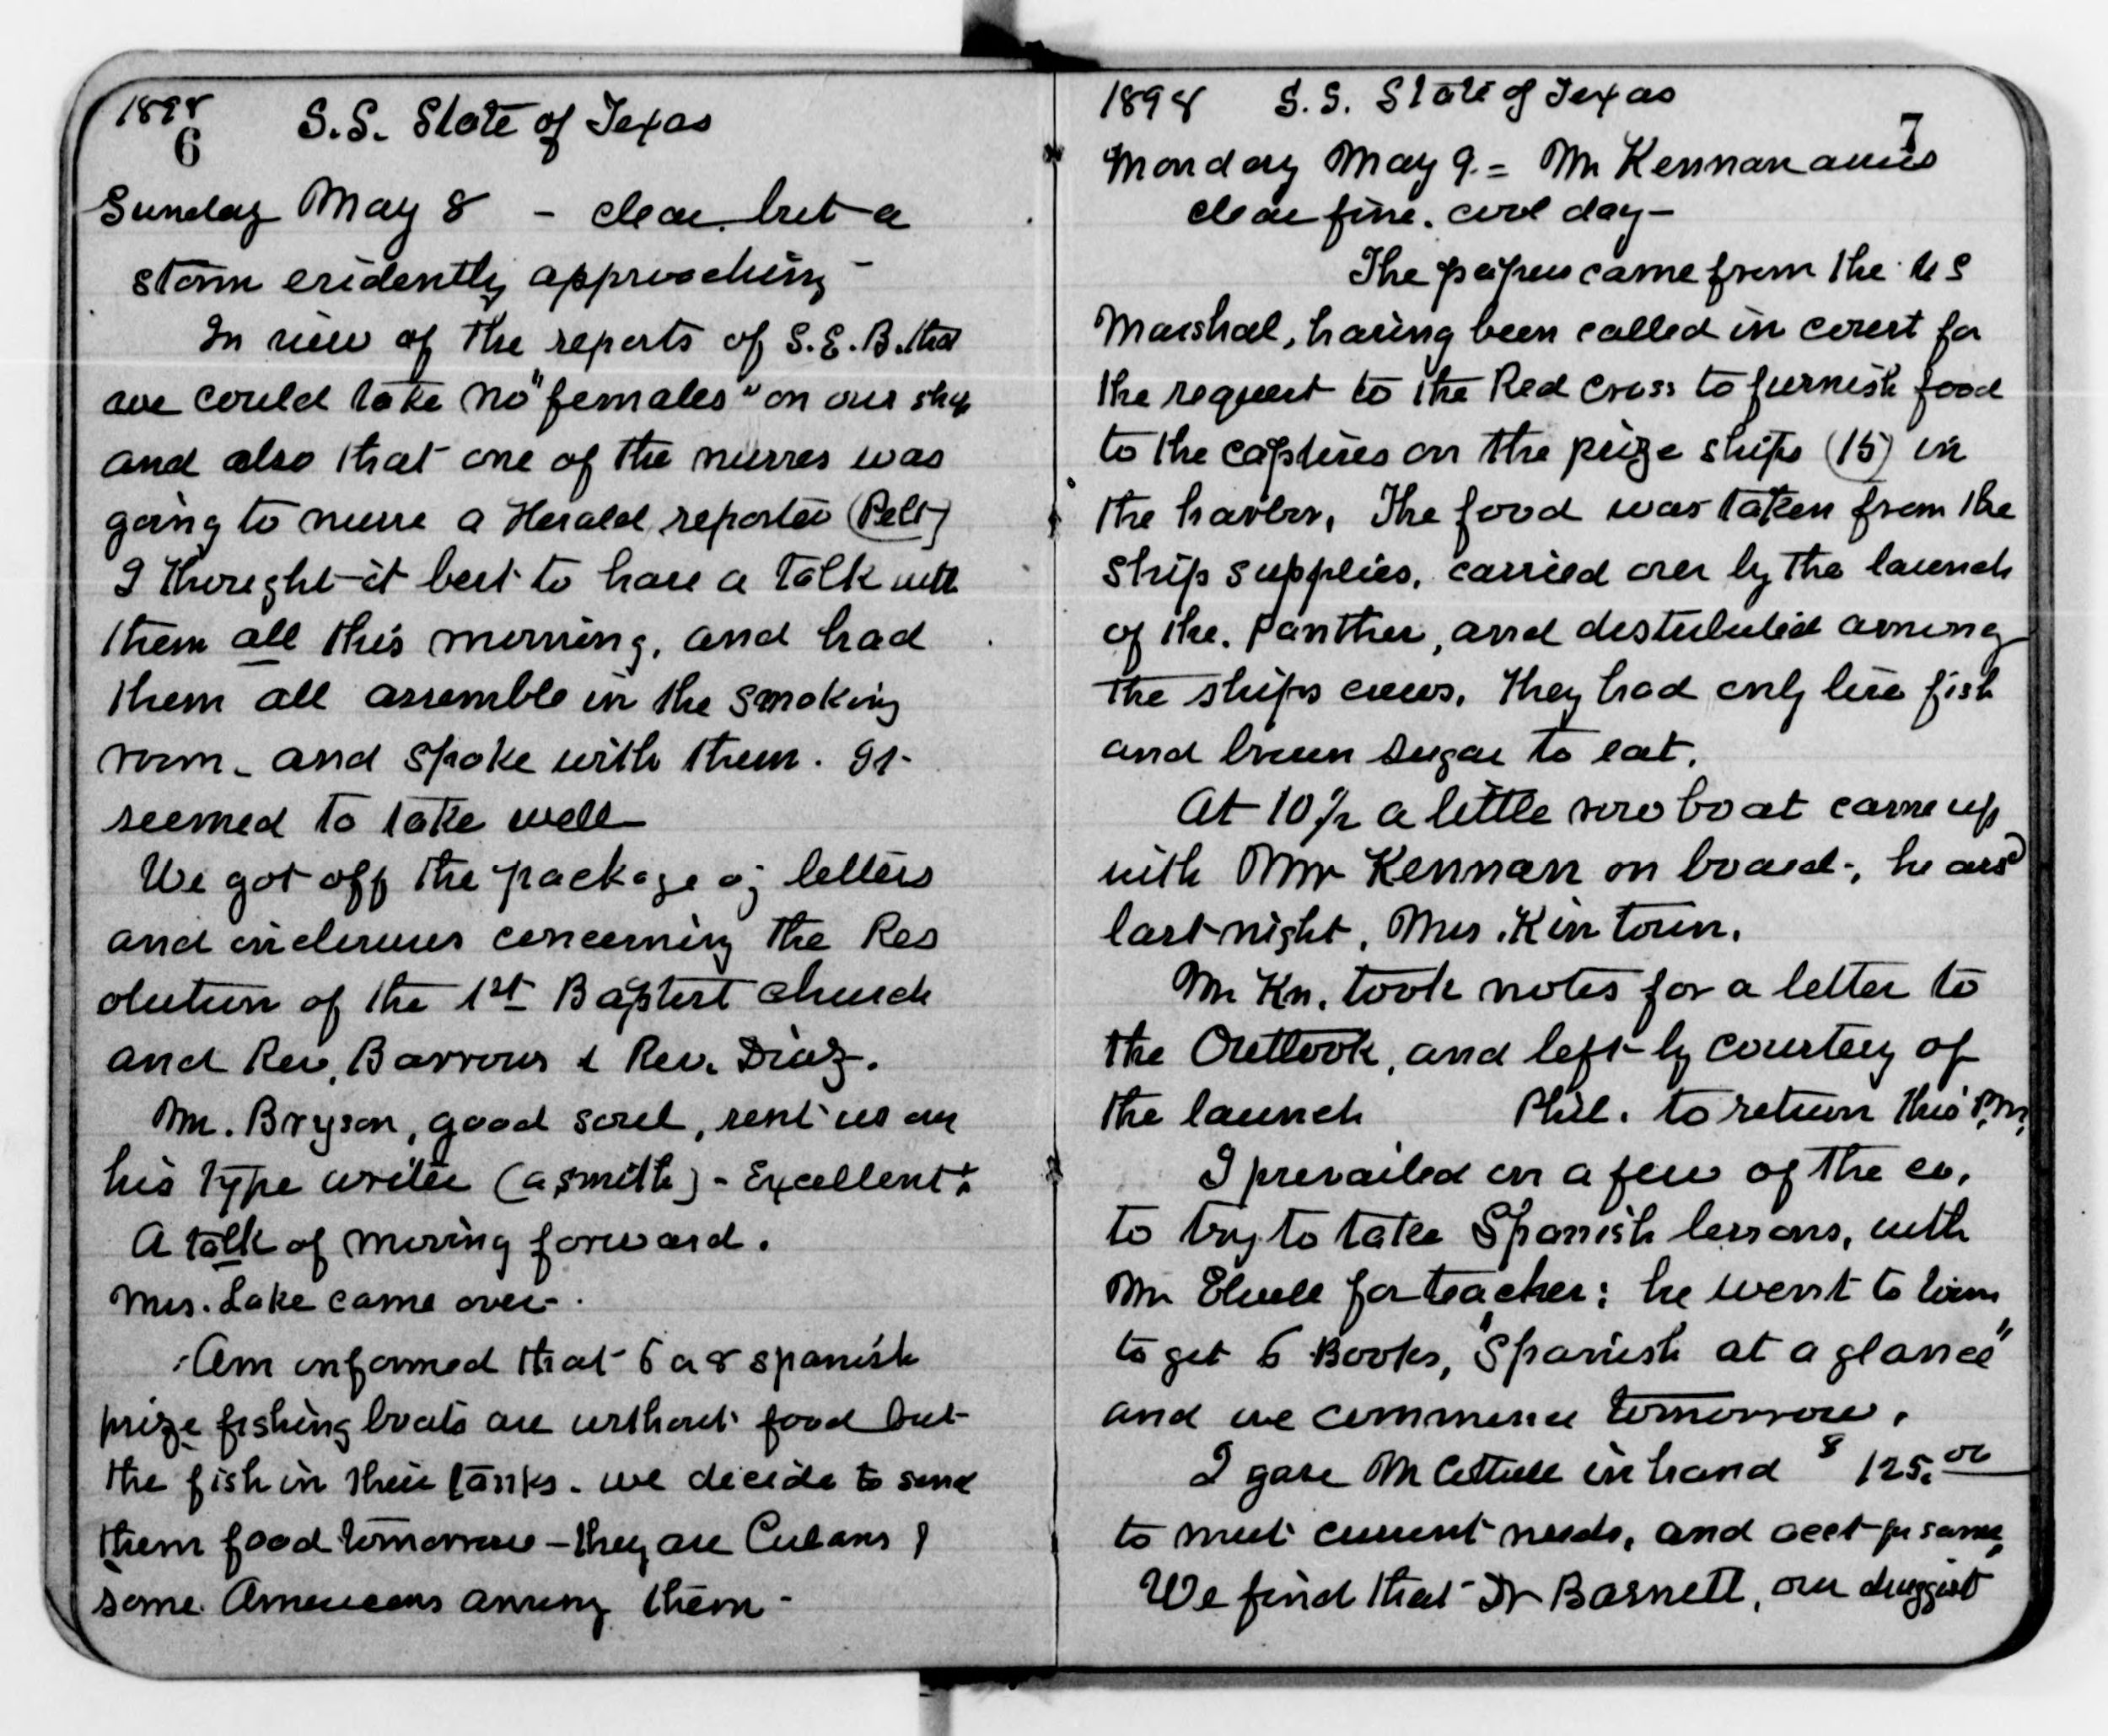 1898
6 S.S. State of Texas
Sunday May 8 - clear but a
storm evidently approaching -
In view of the reports of S.E.B. that
we could take no "females" on our ship
and also that one of the nurses was
going to nurse a Herald reporter (Pelt)
I thought it best to have a talk with
them all this morning, and had
them all assemble in the smoking
room - and spoke with them. It
seemed to take well
We got off the package of letters
and inclosures concerning the Res
olution of the 1st Baptist church
and Rev. Barrows & Rev. Diaz.
Mr. Bryson, good soul, sent us
his type writer (a Smith) - Excellent.
A talk of moving forward.
Mrs. Lake came over.
Am informed that 6 a 8 spanish
prize fishing boats are without food but
the fish in their tanks. we decide to send
them food tomorrow - they are Cubans
some Americans among them -
1898 S.S. State of Texas
7
Monday May 9. = Mr Kennan arrives
clear fine. cool day -
The papers came from the U S
Marshal, having been called in court for
the request to the Red Cross to furnish food
to the captives on the prize ships (15) in
the harbor, The food was taken from the
ship supplies, carried over by the launch
of the Panther, and distributed among
the ships crews. They had only live fish
and brown sugar to eat.
At 10 1/2 a little row boat came up
with Mr Kennan on board -, he arrd
last night, Mrs. Kin town.
Mr Kn. took notes for a letter to
the Outlook, and left by courtesy of
the launch Phil. to return this P.M.
I prevailed on a few of the co.
to try to take Spanish lessons, with
Mr Elwell for teacher; he went to town
to get 6 Books, "Spanish at a glance"
and we commence tomorrow.
I gave Mr Cottrell in hand $ 125.00
to meet current needs, and acct for same,
We find that Dr Barnett, our druggist